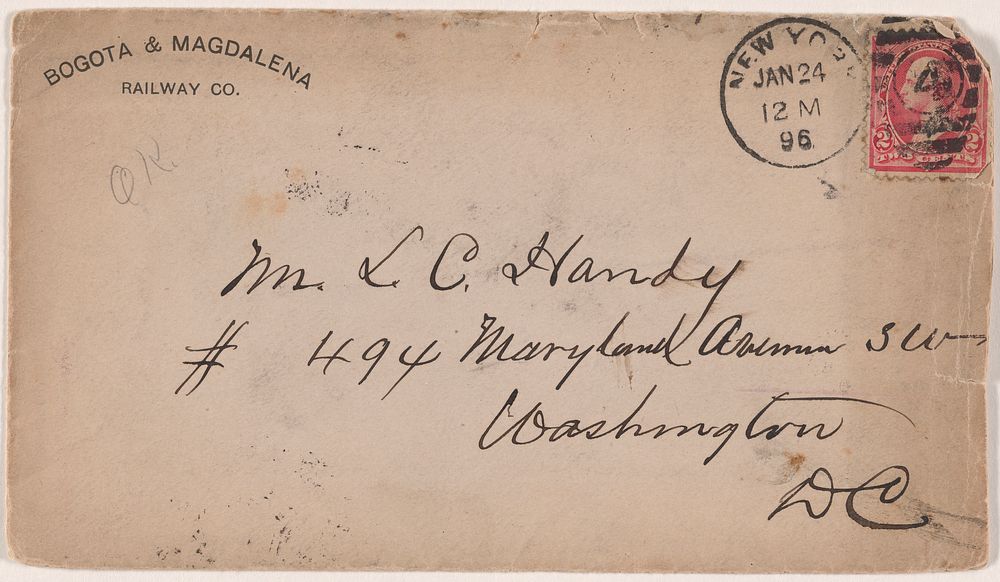 BOGOTA & MAGDALENA
RAILWAY CO.
O.K.
NEW YORK
JAN 24
12 M
96
4
2 2
Mr. L. C. Handy
# 494 Maryland Avenue S W
Washington
D C